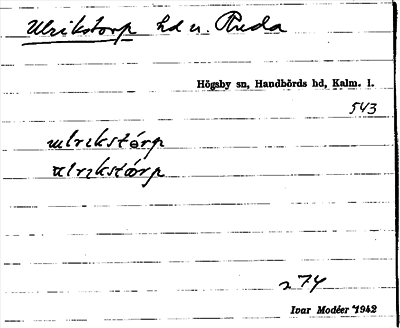 Ulrikstorp hd u. Ruda
Högsby sn, Handbörds hd, Kalm. l.
543
ulrikstórp
ulrikstórp
274
Ivar Modéer 1942